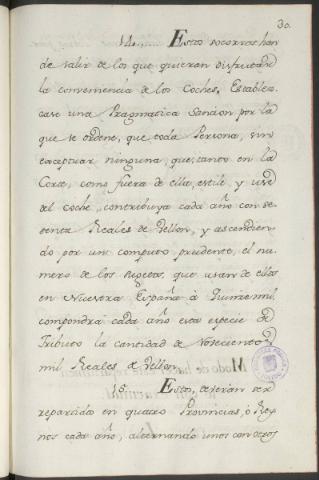 30.
14. Estos socorros han
de salir de los que quieran disfrutar
la conveniencia de los Coches. Establez-
case una Pragmatica Sancion por la
que se ordene, que toda Persona, sin
exceptuar ninguna, que tanto en la
Corte, como fuera de ella, estile, y use
del coche, contribuya cada año con se-
tenta Reales de Vellon, y ascendien-
do por un computo prudente, el nu-
mero de los sugetos, que usan de ellos
en Nuestra España à
compondrà cada año esta especie de
Tributo la cantidad de Novecientos
mil Reales de Vellon.
15. Estos, deveràn ser
repartidos en quatro Provincias, ò Rey-
nos cada año, alternando unos con otros